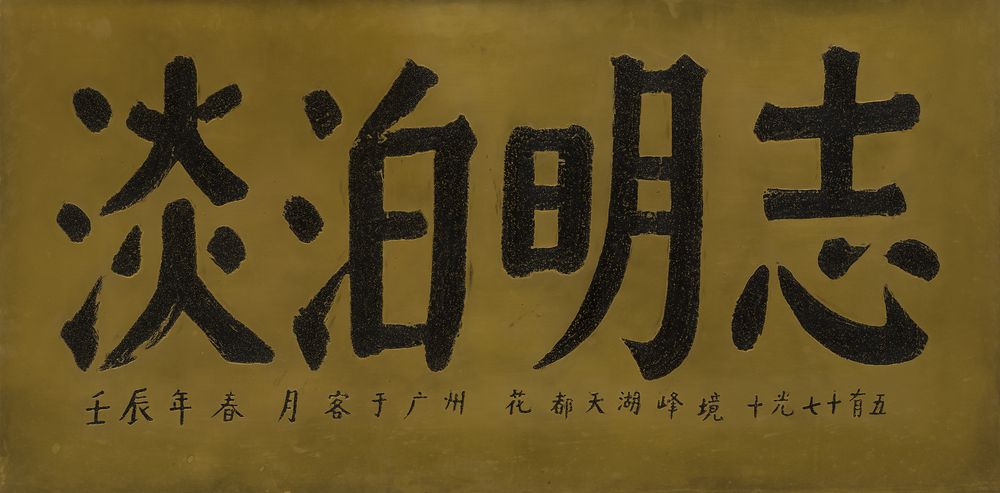 淡泊明志
壬辰年春月客于广州花都天湖峰境十光七十有五